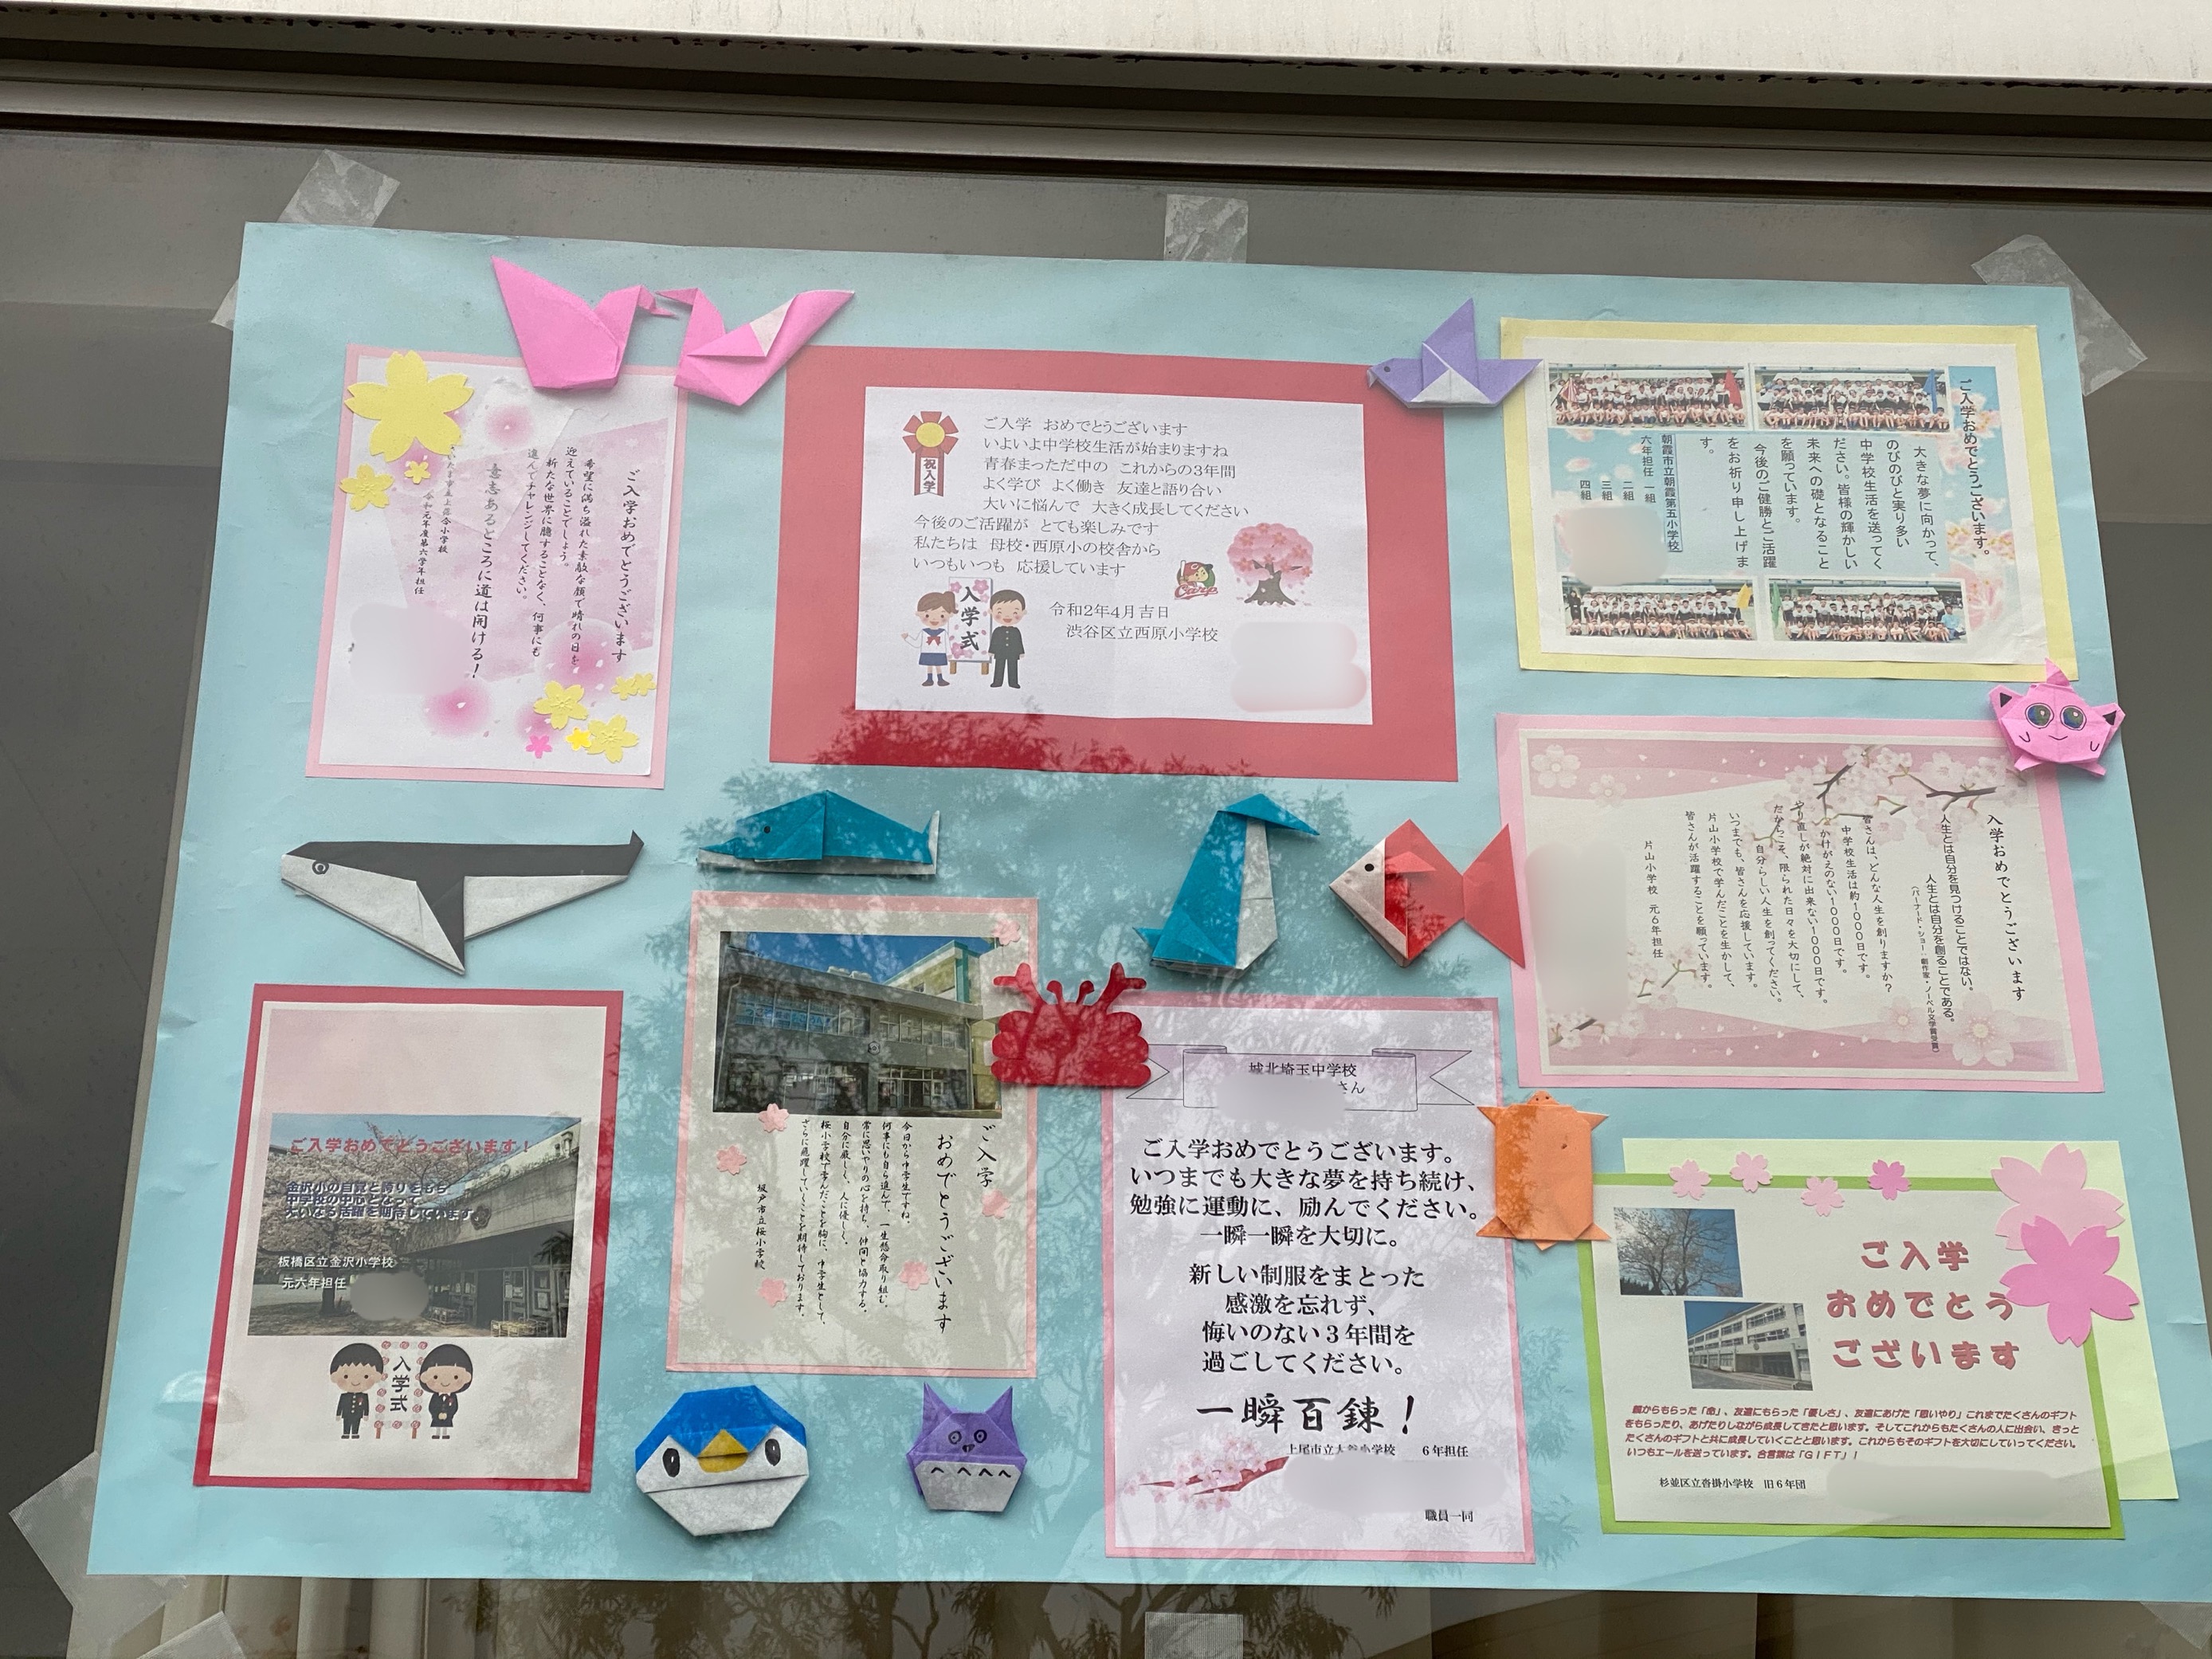 ご入学おめでとうございます
希望に満ち溢れた素敵な顔で晴れの日を
迎えていることでしょう。
新たな世界に臆することなく、何事にも
進んでチャレンジしてください。
意志あるところに道は開ける！
小学校
令和元年度第六学年担任
祝入学
ご入学　おめでとうございます
いよいよ中学校生活が始まりますね
青春まっただ中の　これからの3年間
よく学び　よく働き　友達と語り合い
大いに悩んで　大きく成長してください
今後のご活躍が　とても楽しみです
私たちは　母校・西原小の校舎から
いつもいつも　応援しています
Carp
入学式
令和2年4月吉日
渋谷区立西原小学校
ご入学おめでとうございます。
大きな夢に向かって、
のびのびと実り多い
中学校生活を送ってく
ださい。皆様の輝かしい
未来への礎となること
を願っています。
今後のご健勝とご活躍
をお祈り申し上げま
す。
朝霞市立朝霞第五小学校
六年担任　一組
二組
三組
四組
入学おめでとうございます
人生とは自分を見つけることではない。
人生とは自分を創ることである。
（バーナード・ショー：劇作家・ノーベル文学賞受賞）
皆さんは、どんな人生を創りますか？
中学校生活は約1000日です。
かけがえのない1000日です。
やり直しが絶対に出来ない1000日です。
だからこそ、限られた日々を大切にして、
自分らしい人生を創ってください。
いつまでも、皆さんを応援しています。
片山小学校で学んだことを生かして、
皆さんが活躍することを願っています。
片山小学校　元6年担任
ご入学おめでとうございます！
金沢小の自覚と誇りをもち
中学校の中心となって
大いなる活躍を期待しています
板橋区立金沢小学校
元六年担任
入学式
ご入学
おめでとうございます
今日から中学生ですね。
何事にも自ら進んで、一生懸命取り組む。
常に思いやりの心を持ち、仲間と協力する。
自分に厳しく、人に優しく。
桜小学校で学んだことを胸に、中学生として、
さらに飛躍していくことを期待しております。
坂戸市立桜小学校
城北埼玉中学校
さん
ご入学おめでとうございます。
いつまでも大きな夢を持ち続け、
勉強に運動に、励んでください。
一瞬一瞬を大切に。
新しい制服をまとった
感激を忘れず、
悔いのない３年間を
過ごしてください。
一瞬百錬！
上尾市立大谷小学校　6年担任
職員一同
ご入学
おめでとう
ございます
親からもらった「命」、友達にもらった「優しさ」、友達にあげた「思いやり」これまでたくさんのギフト
をもらったり、あげたりしながら成長してきたと思います。そしてこれからもたくさんの人に出会い、きっと
たくさんのギフトと共に成長していくことと思います。これからもそのギフトを大切にしていってください。
いつもエールを送っています。合言葉は「ＧＩＦＴ」！
杉並区立沓掛小学校　旧6年団